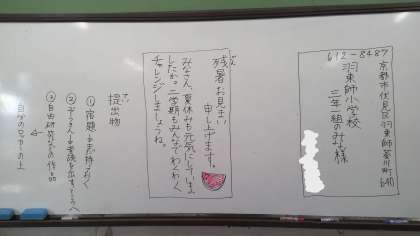 612-8487
京都市伏見区羽束師菱川町640
羽束師小学校
三年 組のみな様
残暑お見まい
ざん
申し上げます。
みなさん、夏休みも元気にしていま
したか。二学期もみんなでわくわく
チャレンジしましょうね。
提出物
①宿題
③自由研究などの作品
自分のロッカーの上